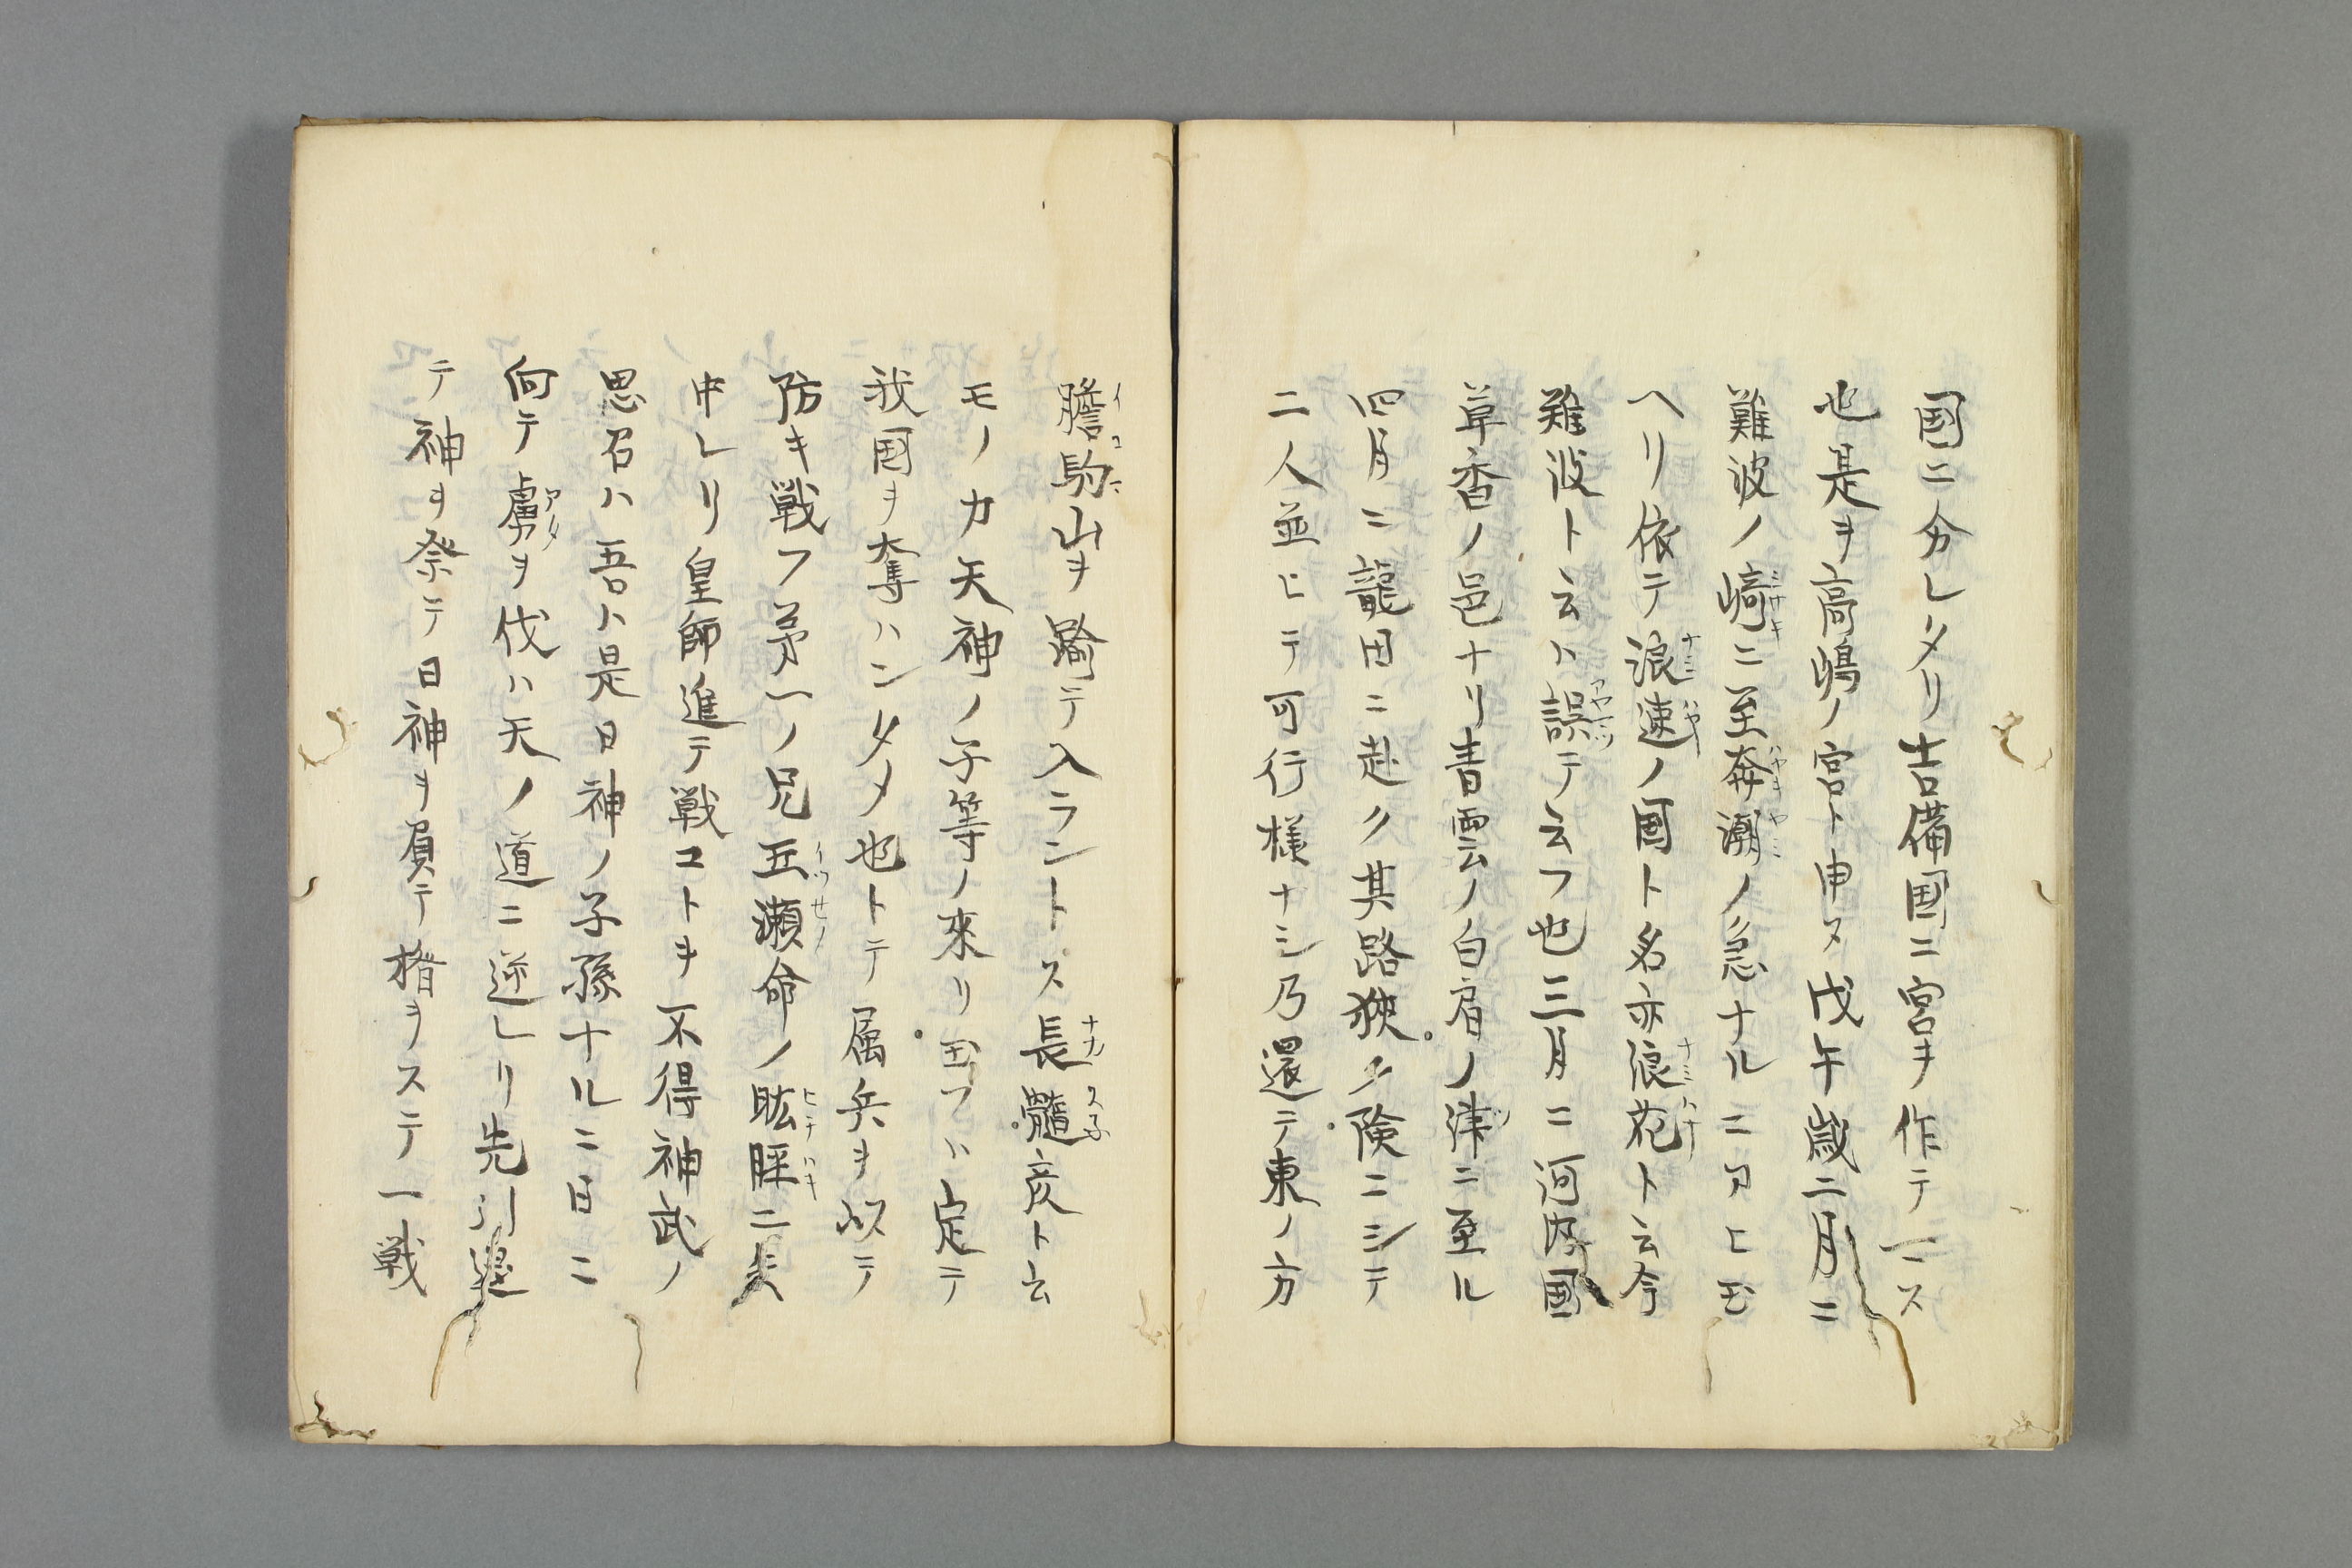 國ニ分レタリ吉備國ニ宮ヲ作テマス
也是ヲ高嶋ノ宮ト申ス戊午歳二月ニ
難波ノ崎ニ至奔潮ノ急ナルニヨヒ玉
ヘリ依テ浪速ノ國ト名亦浪花ト云今
難波ト云ハ誤テ云フ也三月ニ河内國
草香ノ邑ナリ青雲ノ白肩ノ津ニ至ル
四月ニ龍田ニ赴ク其路狭ク険ニシテ
二人並ヒテ可行様ナシ乃還テ東ノ方
膽駒山ヲ踰テ入ラントス長髓彦ト云
モノカ天神ノ子等ノ来リ玉フハ定テ
我国ヲ奪ハンタメ也トテ属兵ヲ以テ
防キ戦フ第一ノ兄五瀬命ノ肱脛ニ矢
中レリ皇師進テ戦コトヲ不得神武ノ
思召ハ吾ハ是日神ノ子孫ナルニ日ニ
向テ虜ヲ伐ハ天ノ道ニ逆レリ先
テ神ヲ祭テ日神ヲ負テ楯ヲステ一戦